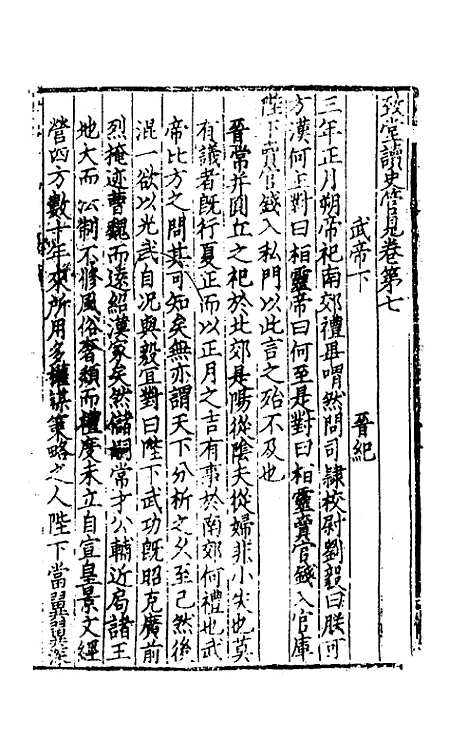 致堂讀史管見卷第七
武帝下　晉紀
三年正月朔帝祀南郊禮畢喟然問司隸校尉劉毅曰朕可
方漢何主對曰桓靈帝曰何至是對曰桓靈賣官錢入官庫
陛下賣官錢入私門以此言之殆不及也
晉常并圓丘之祀於北郊是陽從陰夫從婦非小失也莫
有議者旣行夏正而以正月之吉有事於南郊何禮也武
帝比方之問其可知矣無亦謂天下分析之久至己然後
混一欲以光武自況與毅宜對曰陛下武功旣昭克廣前
烈掩迹曹魏而遠紹漢家矣然儲嗣常才公輔近局諸王
地大而公制不修風俗奢纇而禮度未立自宣皇景文經
營四方數十年來所用多權謀策略之人陛下當翼翼深